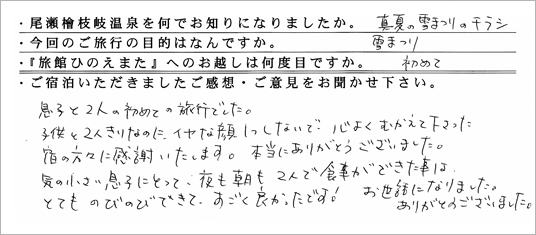 ・尾瀬檜枝岐温泉を何でお知りになりましたか。 真夏の雪まつりのチラシ
・今回のご旅行の目的はなんですか。 雪まつり
・『旅館ひのえまた』へのお越しは何度目ですか。 初めて
・ご宿泊いただきましたご感想・ご意見をお聞かせ下さい。
息子と2人の初めての旅行でした。
子供と2人きりなのに、イヤな顔1つしないで 心よくむかえて下さった
宿の方々に感謝いたします。本当にありがとうございました。
気の小さい息子にとって、夜も朝も2人で食事ができた事は、
とてものびのびできて、すごく良かったです! お世話になりました。
ありがとうございました。